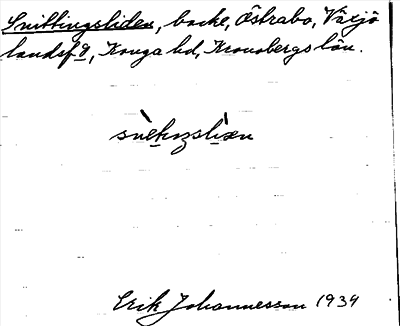 Snittingsliden, backe, Östrabo, Växjö
landsf d, Konga hd, Kronobergs län.
Erik Johannesson 1934